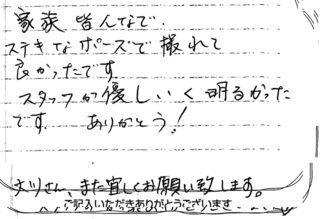 家族皆んなで.
ステキなポーズで撮れて
良かったです
スタッフが優しいく明るかった
です. ありがとう!
さん、また宜しくお願い致します。
ご記入いただきありがとうございます